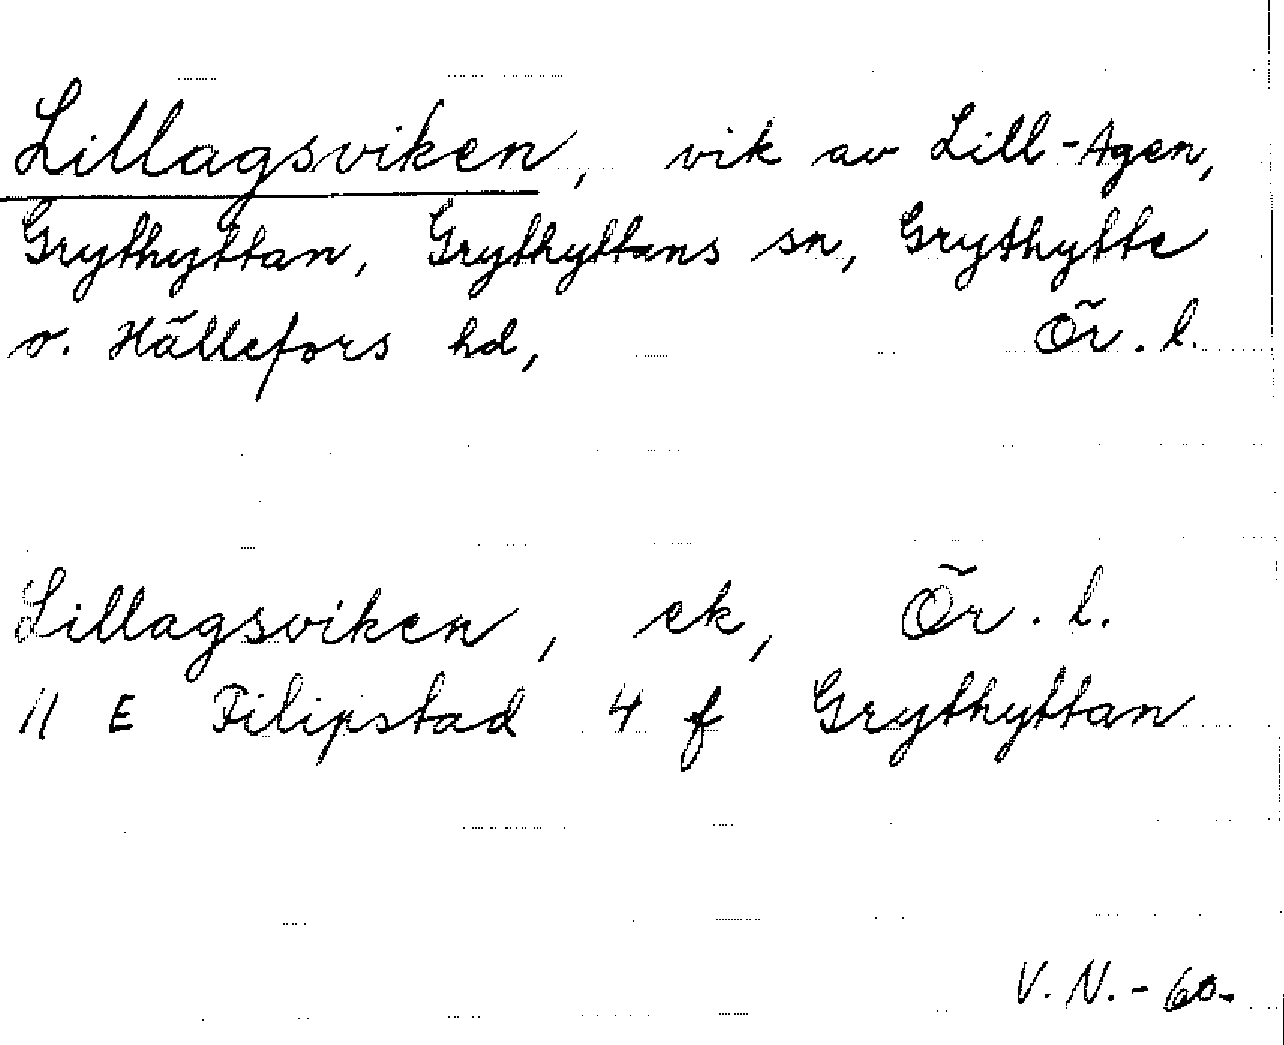 Lillagsviken, vik av Lill-Agen,
Grythyttan, Grythyttans sn, Grythytte
o. Hällefors hd, Ör. l.
Lillagsviken, ek, Ör. l.
11 E Filipstad 4 f Grythyttan
V. N. - 60-